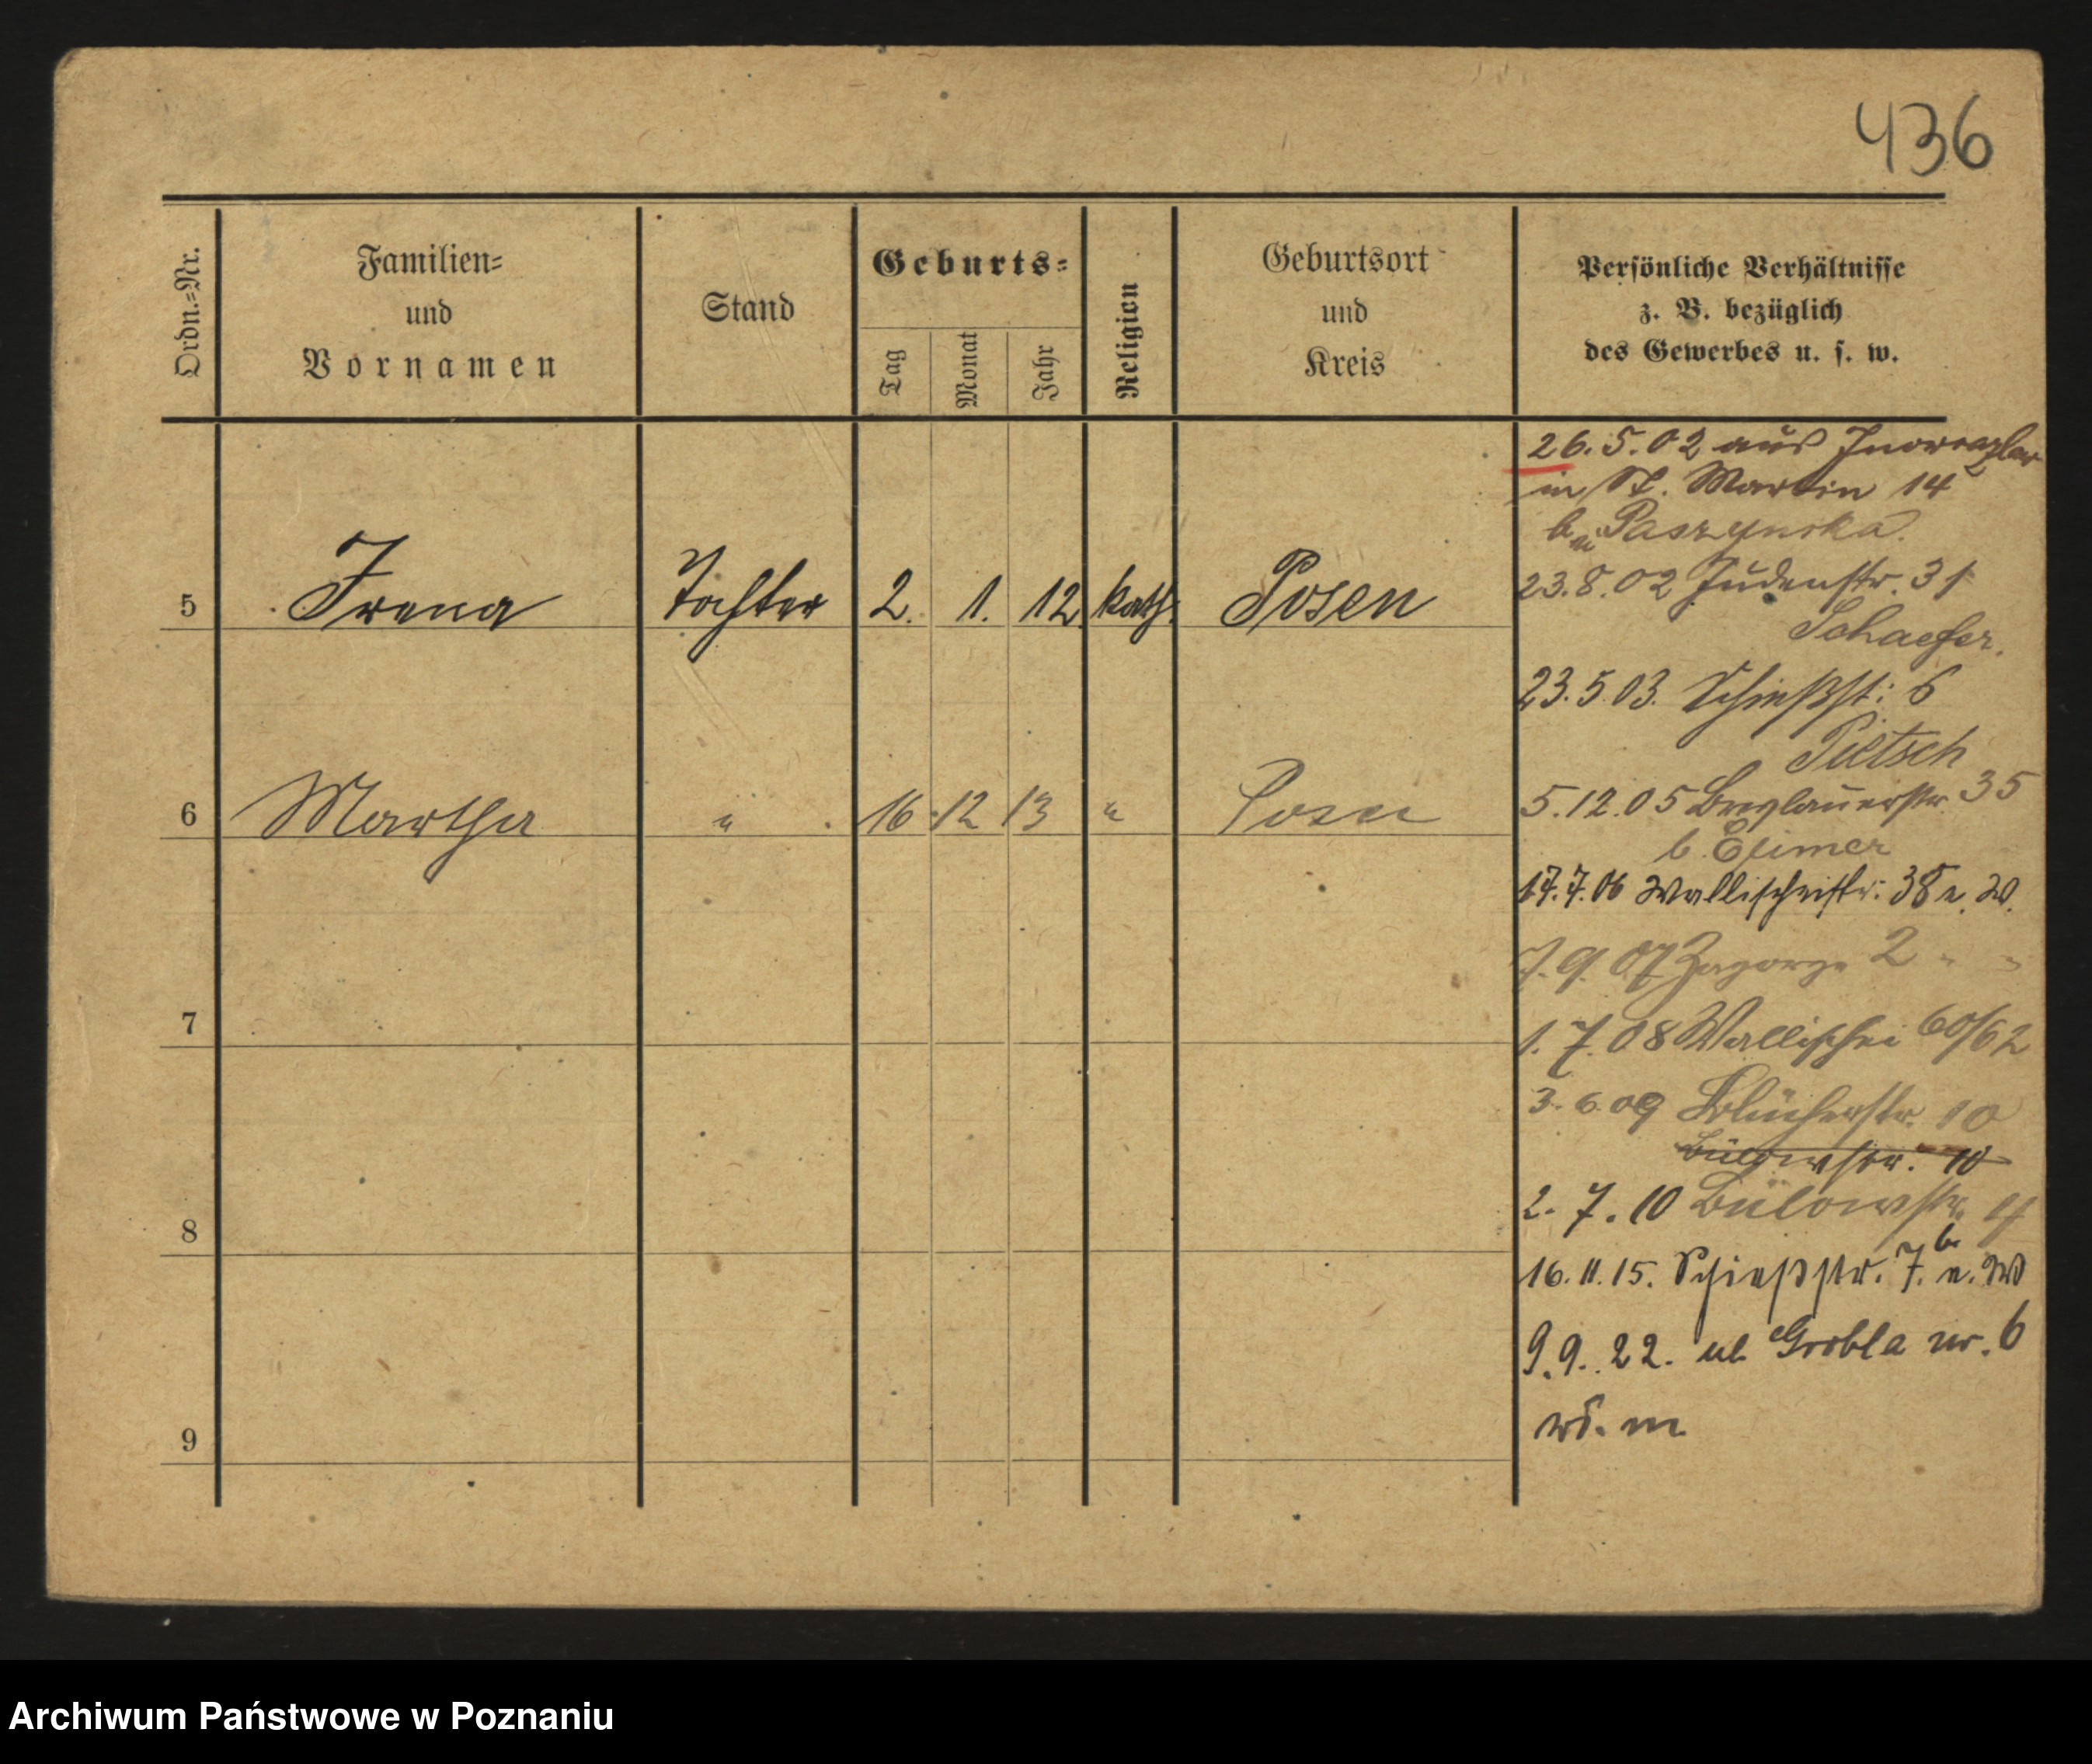 436
Ordn.-Nr.
Familien-
und
Vornamen
Stand
Geburts-
Tag
Monat
Jahr
Religion
Geburtsort
und
Kreis
Persönliche Verhältnisse
z. B. bezüglich
des Gewerbes u. s. w.
5 Irena Tochter 2. 1. 12. kath. Posen
6 Martha " 16 12 13 " Posen
7
8
9
26.5.02 aus Inowrazlaw
in St. Martin 14
bei Paszynska.
23.8.02 Judenstr. 31
Schaefer.
23.5.03. Schießst: 6
Pietsch
5.12.05 Breslauerstr. 35
b.
17.7.06 Wallischeistr: 38 e. W.
7.9.07 Zagorze 2 " "
1.7.08 Wallischei 60/62
3.6.09 Blücherstr. 10
Bülowstr. 10
2.7.10 Bülowstr. 4
16.11.15. Schießstr. 7.b e. W
9.9.22. ul Grobla nr. 6
wł. m
Archiwum Państwowe w Poznaniu